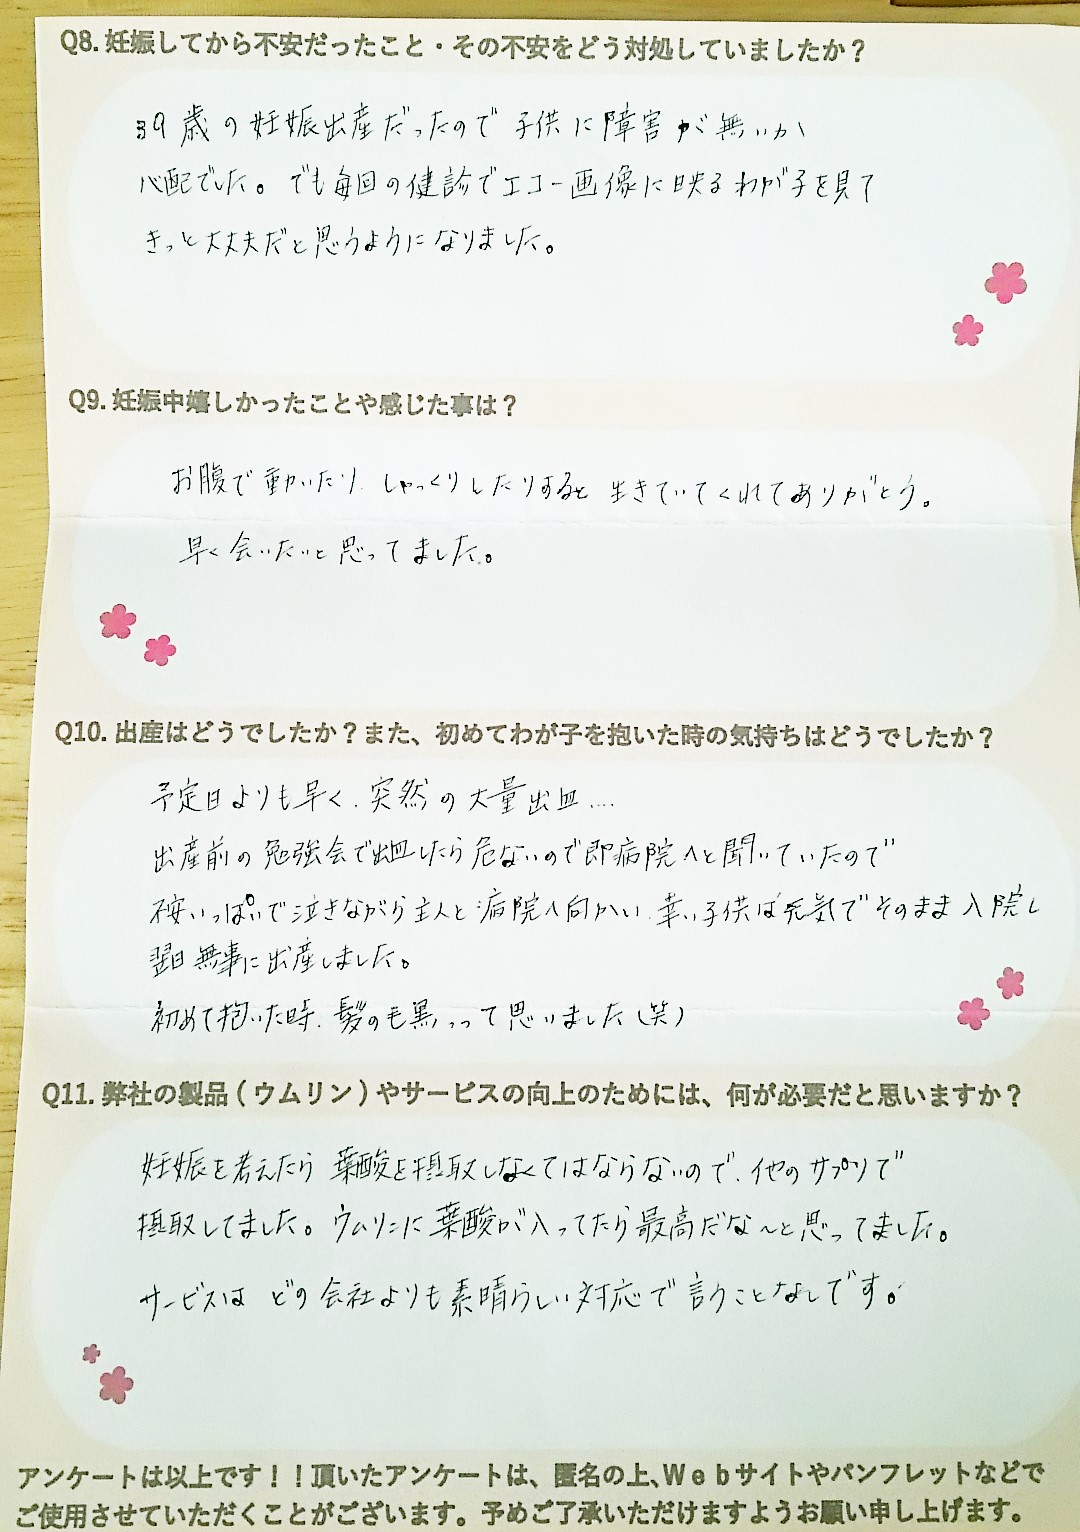 Q8. 妊娠してから不安だったこと・その不安をどう対処していましたか？
39歳の妊娠出産だったので子供に障害が無いか
心配でした。でも毎回の健診でエコー画像に映るわが子を見て
きっと大丈夫だと思うようになりました。
Q9. 妊娠中嬉しかったことや感じた事は？
お腹で動いたり、しゃっくりしたりすると生きていてくれてありがとう。
早く会いたいと思ってました。
Q10. 出産はどうでしたか？また、初めてわが子を抱いた時の気持ちはどうでしたか？
予定日よりも早く、突然の大量出血....
出産前の勉強会で出血したら危ないので即病院へと聞いていたので
不安いっぱいで泣きながら主人と病院へ向かい、幸い子供は元気でそのまま入院し
翌日無事に出産しました。
初めて抱いた時、髪の毛黒っって思いました(笑)
Q11. 弊社の製品(ウムリン)やサービスの向上のためには、何が必要だと思いますか？
妊娠を考えたら葉酸を摂取しなくてはならないので、他のサプリで
摂取してました。ウムリンに葉酸が入ってたら最高だな〜と思ってました。
サービスはどの会社よりも素晴らしい対応で言うことなしです。
アンケートは以上です！！頂いたアンケートは、匿名の上、Ｗｅｂサイトやパンフレットなどで
ご使用させていただくことがございます。予めご了承いただけますようお願い申し上げます。